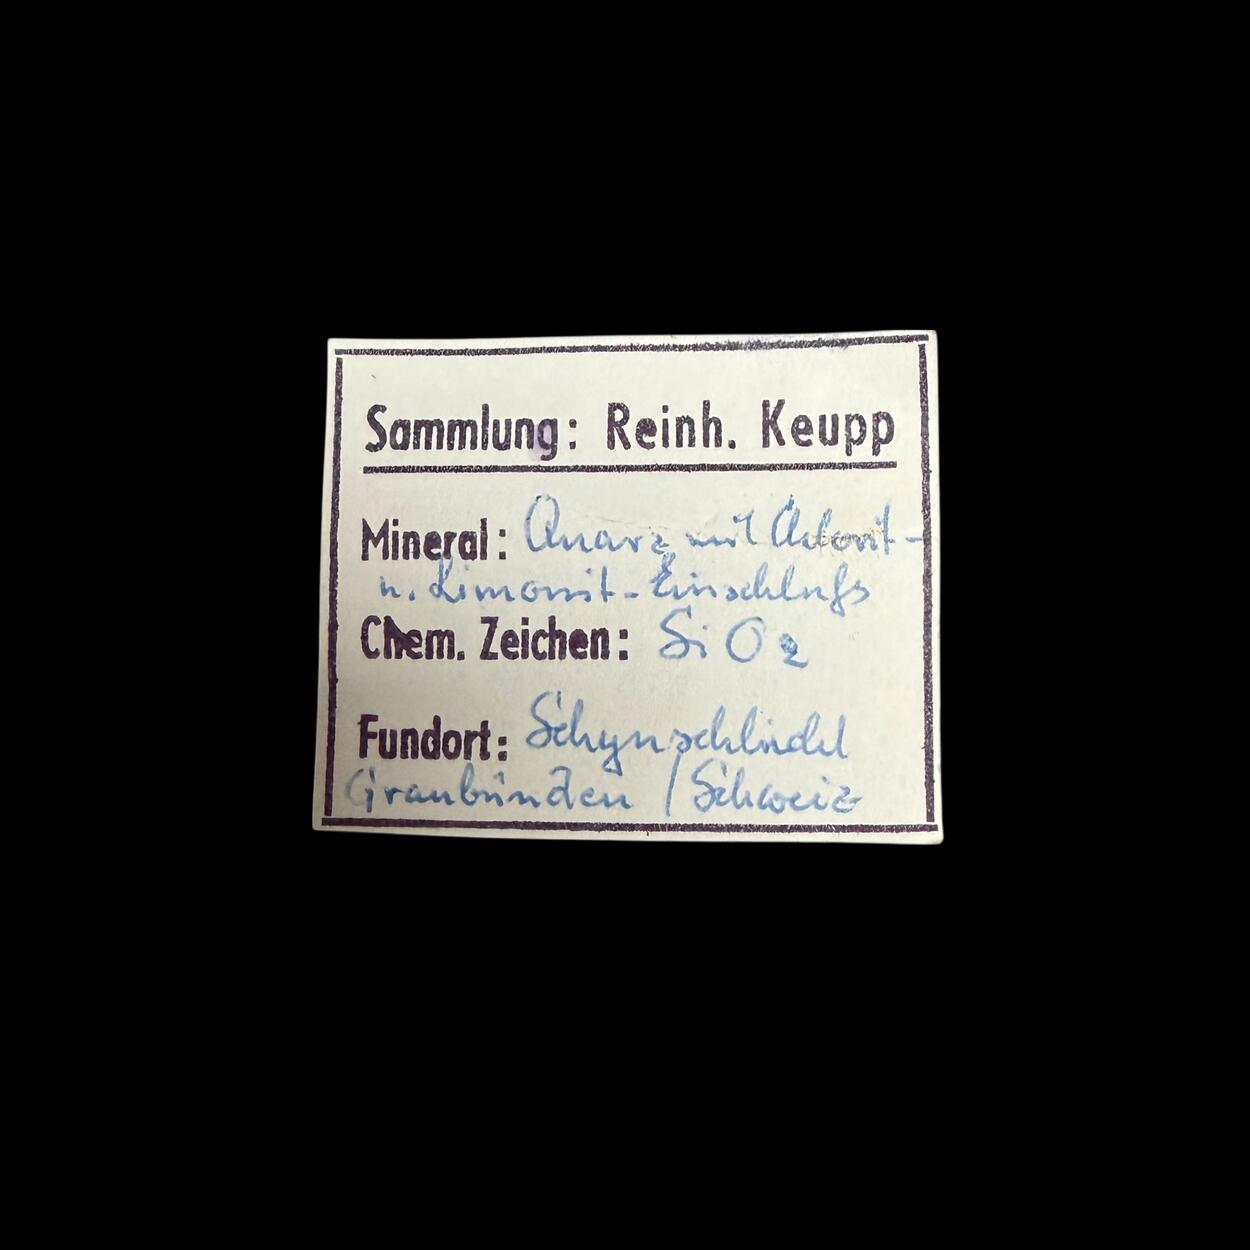 Sammlung: Reinh. Keupp
Mineral: Quarz mit Chlorit-
u. Limonit-Einschluss
Chem. Zeichen: SiO2
Fundort: Schynschlucht
Graubünden / Schweiz